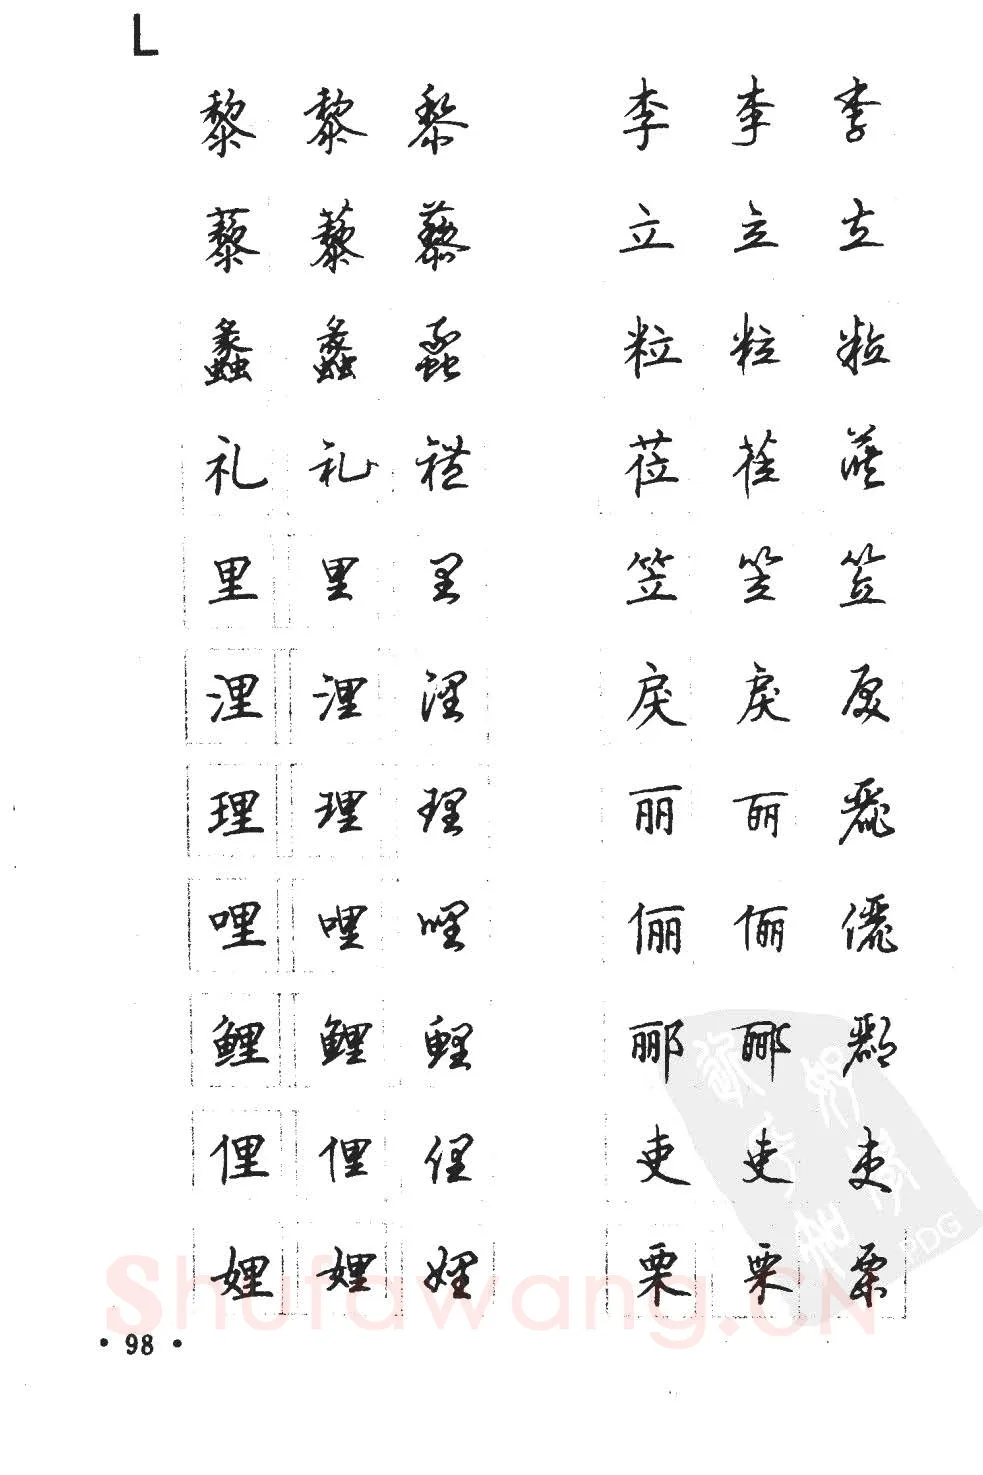 L
黎 黎 黎 李 李 李
藜 藜 藜 立 立 立
蠡 蠡 蠡 粒 粒 粒
礼 礼 禮 莅 莅 莅
里 里 里 笠 笠 笠
浬 浬 浬 戾 戾 戾
理 理 理 丽 丽 麗
哩 哩 哩 俪 俪 儷
鲤 鲤 鲤 郦 郦 酈
俚 俚 俚 吏 吏 吏
娌 娌 娌 栗 栗 栗
Shufawang.CN
PDG
• 98 •